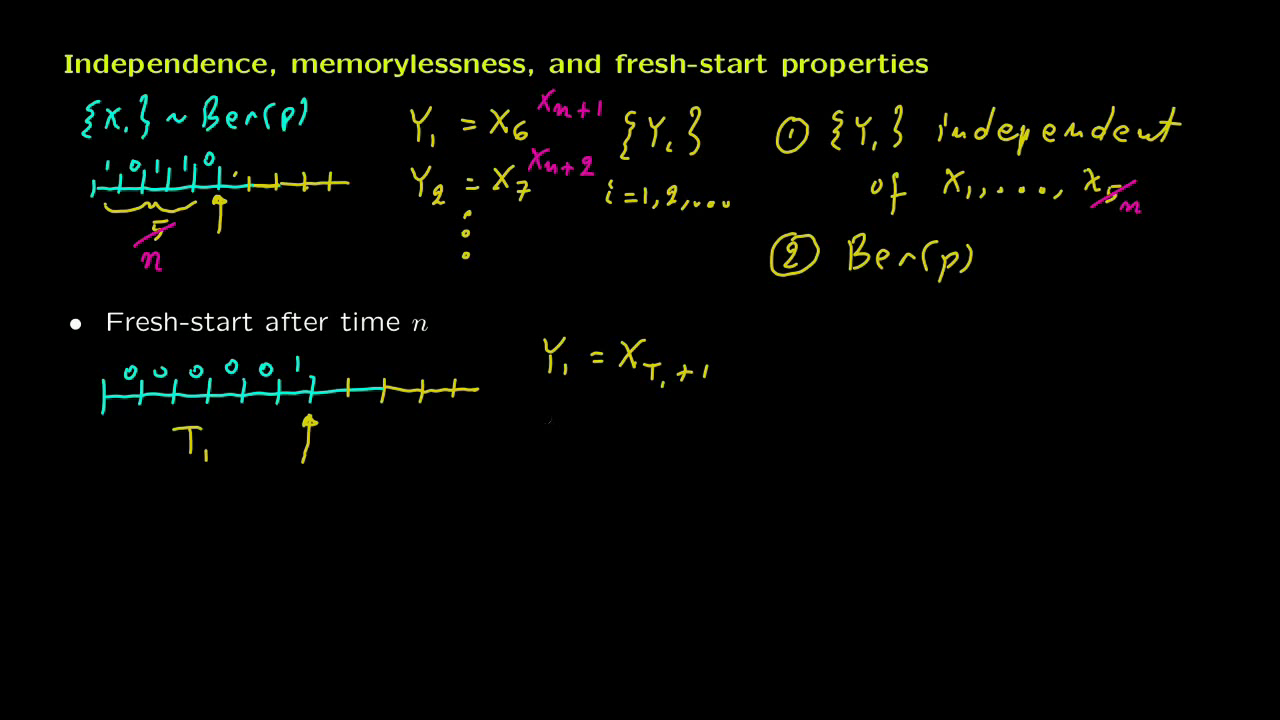 Independence, memorylessness, and fresh-start properties
{Xᵢ} ~ Ber(p)
1 0 1 1 0
5
n
Y₁ = X₆ Xₙ₊₁
Y₂ = X₇ Xₙ₊₂
{Yᵢ}
i = 1, 2, ...
① {Yᵢ} independent
of X₁, ..., X₅ n
② Ber(p)
• Fresh-start after time n
0 0 0 0 0 1
T₁
Y₁ = X_{T₁+1}